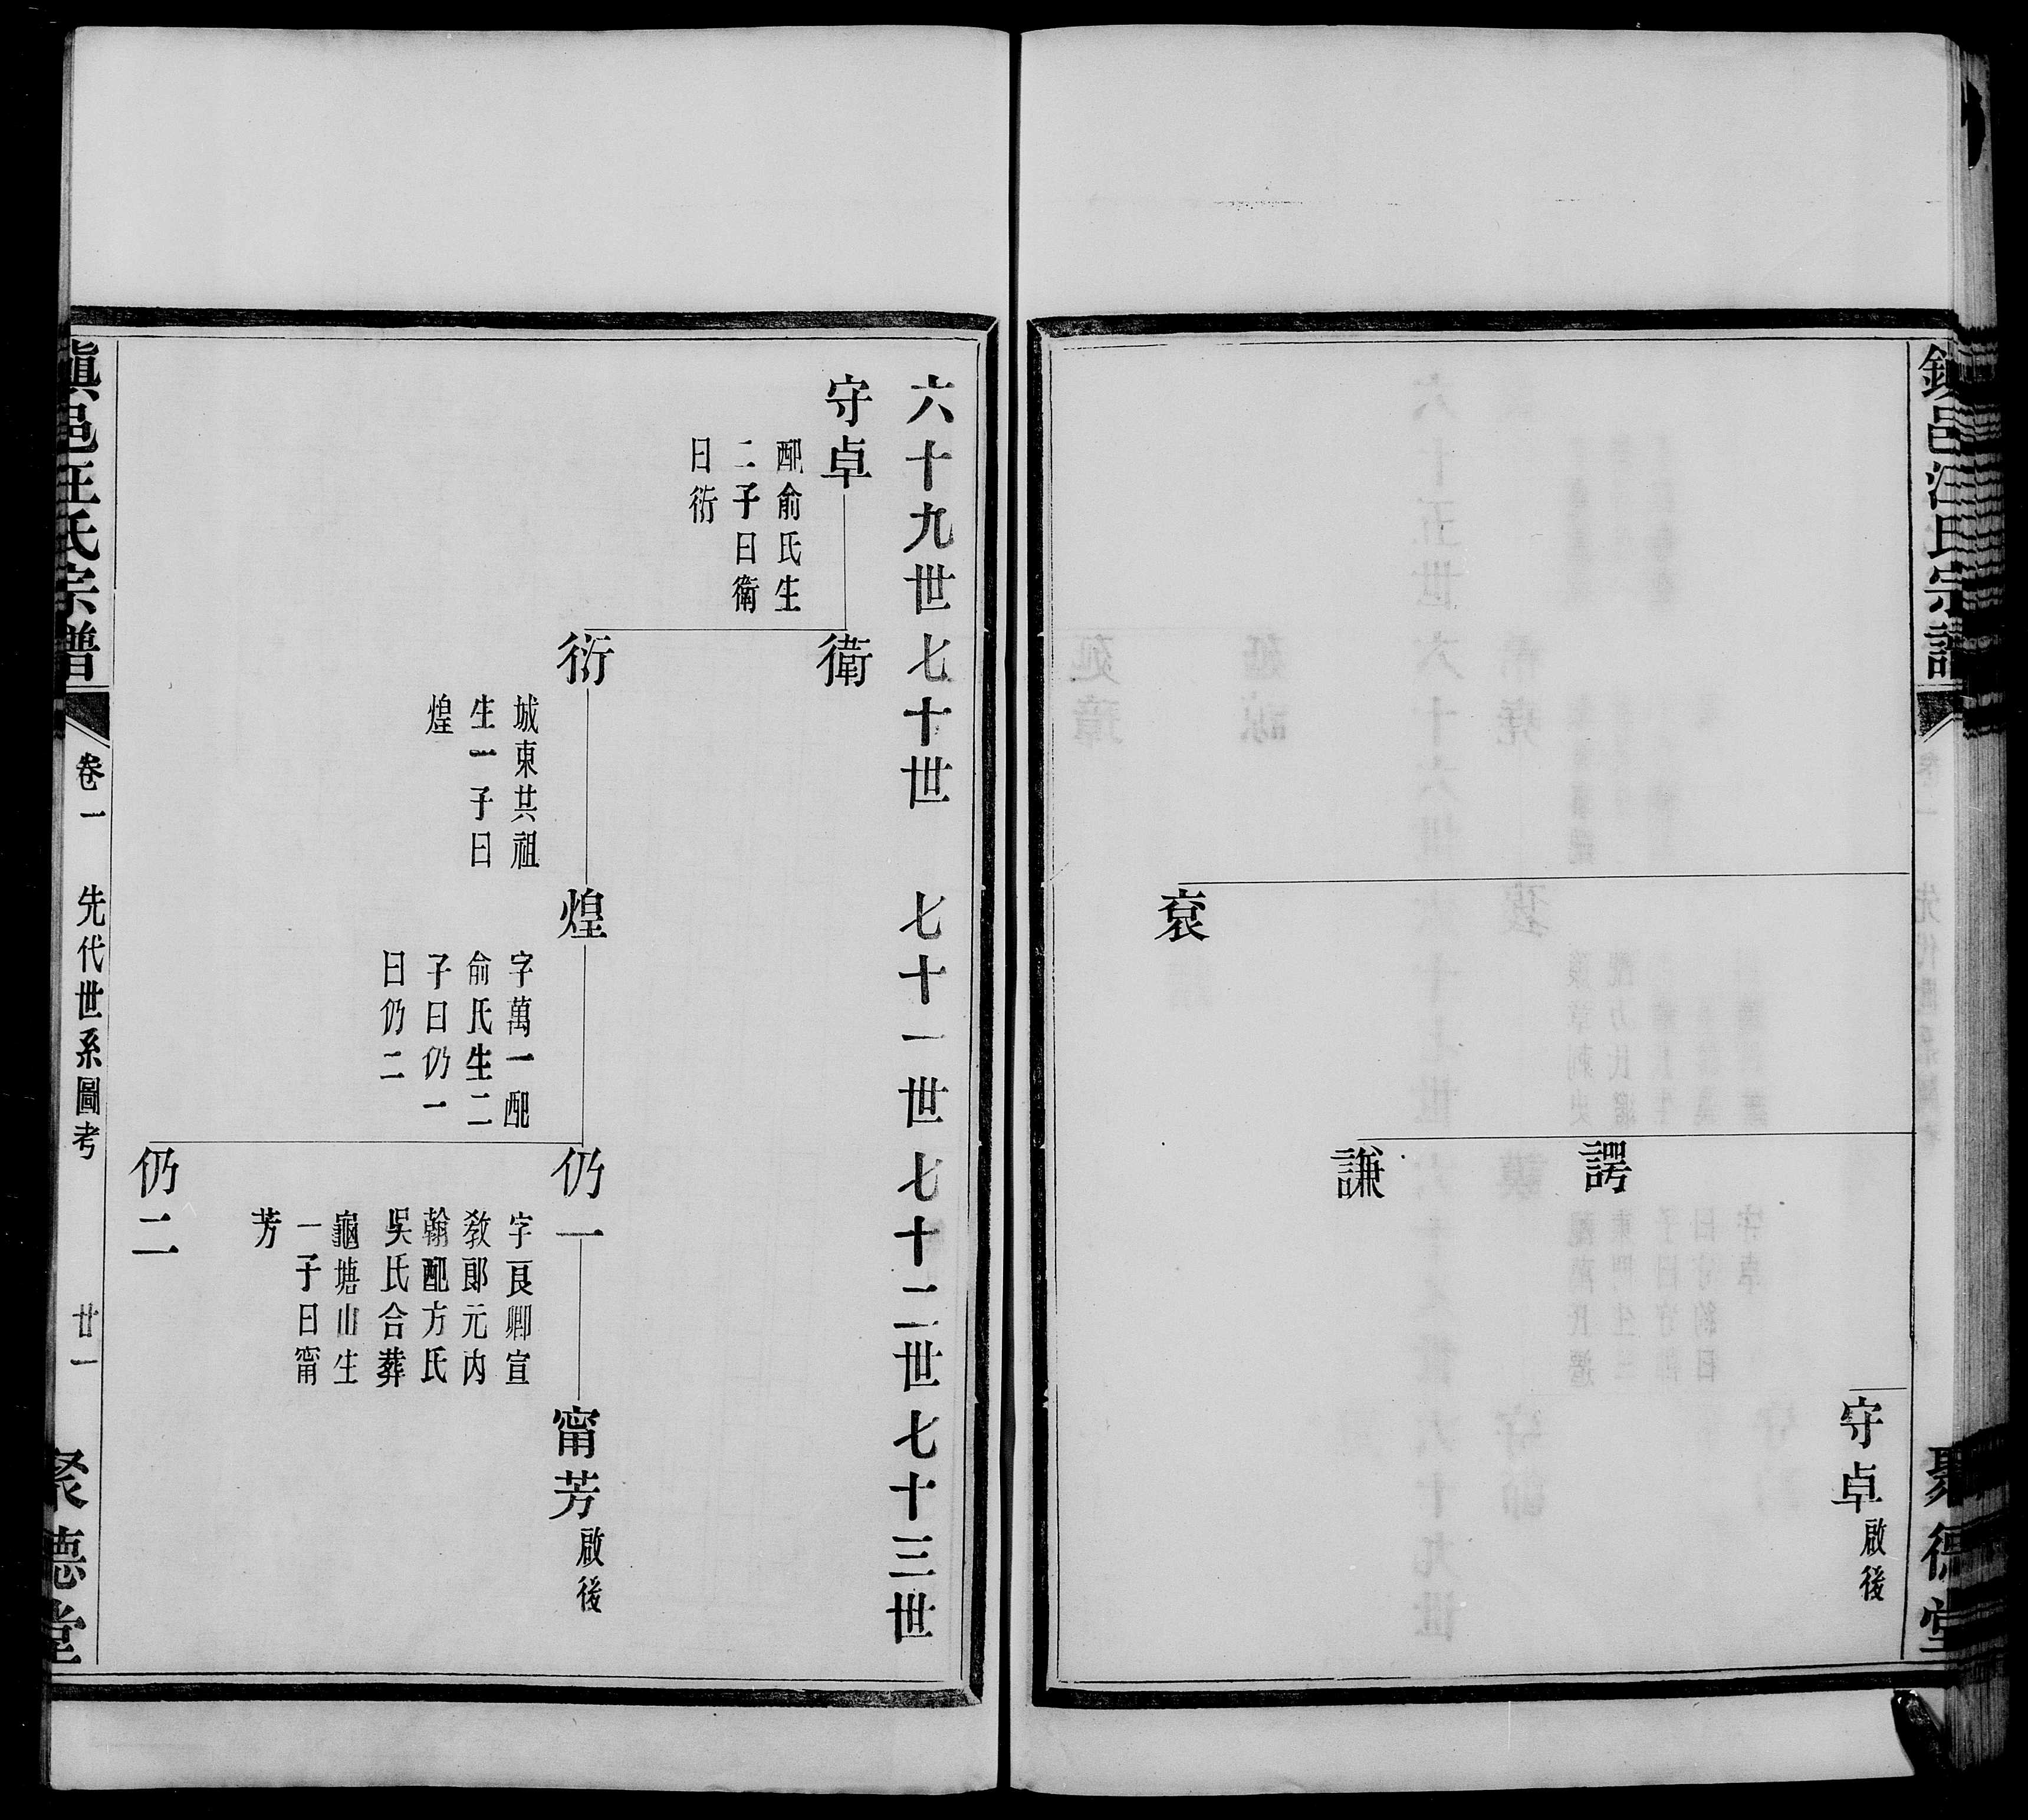 鎮邑汪氏宗譜
聚德堂
守卓啟後
諤
謙
袞
六十九世
七十世
七十一世
七十二世
七十三世
守卓
配俞氏生
二子曰衛
曰衍
衛
衍
城東其祖
生一子曰
煌
煌
字萬一配
俞氏生二
子曰仍一
曰仍二
仍一
字良卿宣
敎郎元內
翰配方氏
吳氏合葬
龜塘山生
一子曰甯
芳
甯芳啟後
仍二
鎮邑汪氏宗譜
卷一
先代世系圖考
廿一
聚德堂